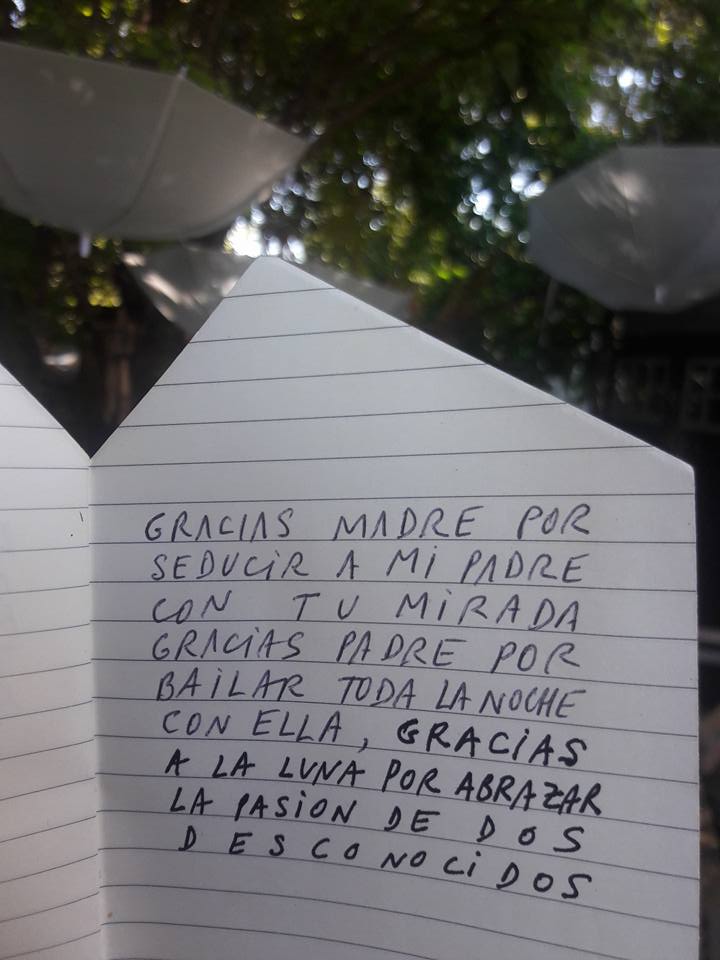 GRACIAS MADRE POR
SEDUCIR A MI PADRE
CON TU MIRADA
GRACIAS PADRE POR
BAILAR TODA LA NOCHE
CON ELLA, GRACIAS
A LA LUNA POR ABRAZAR
LA PASION DE DOS
DESCONOCIDOS